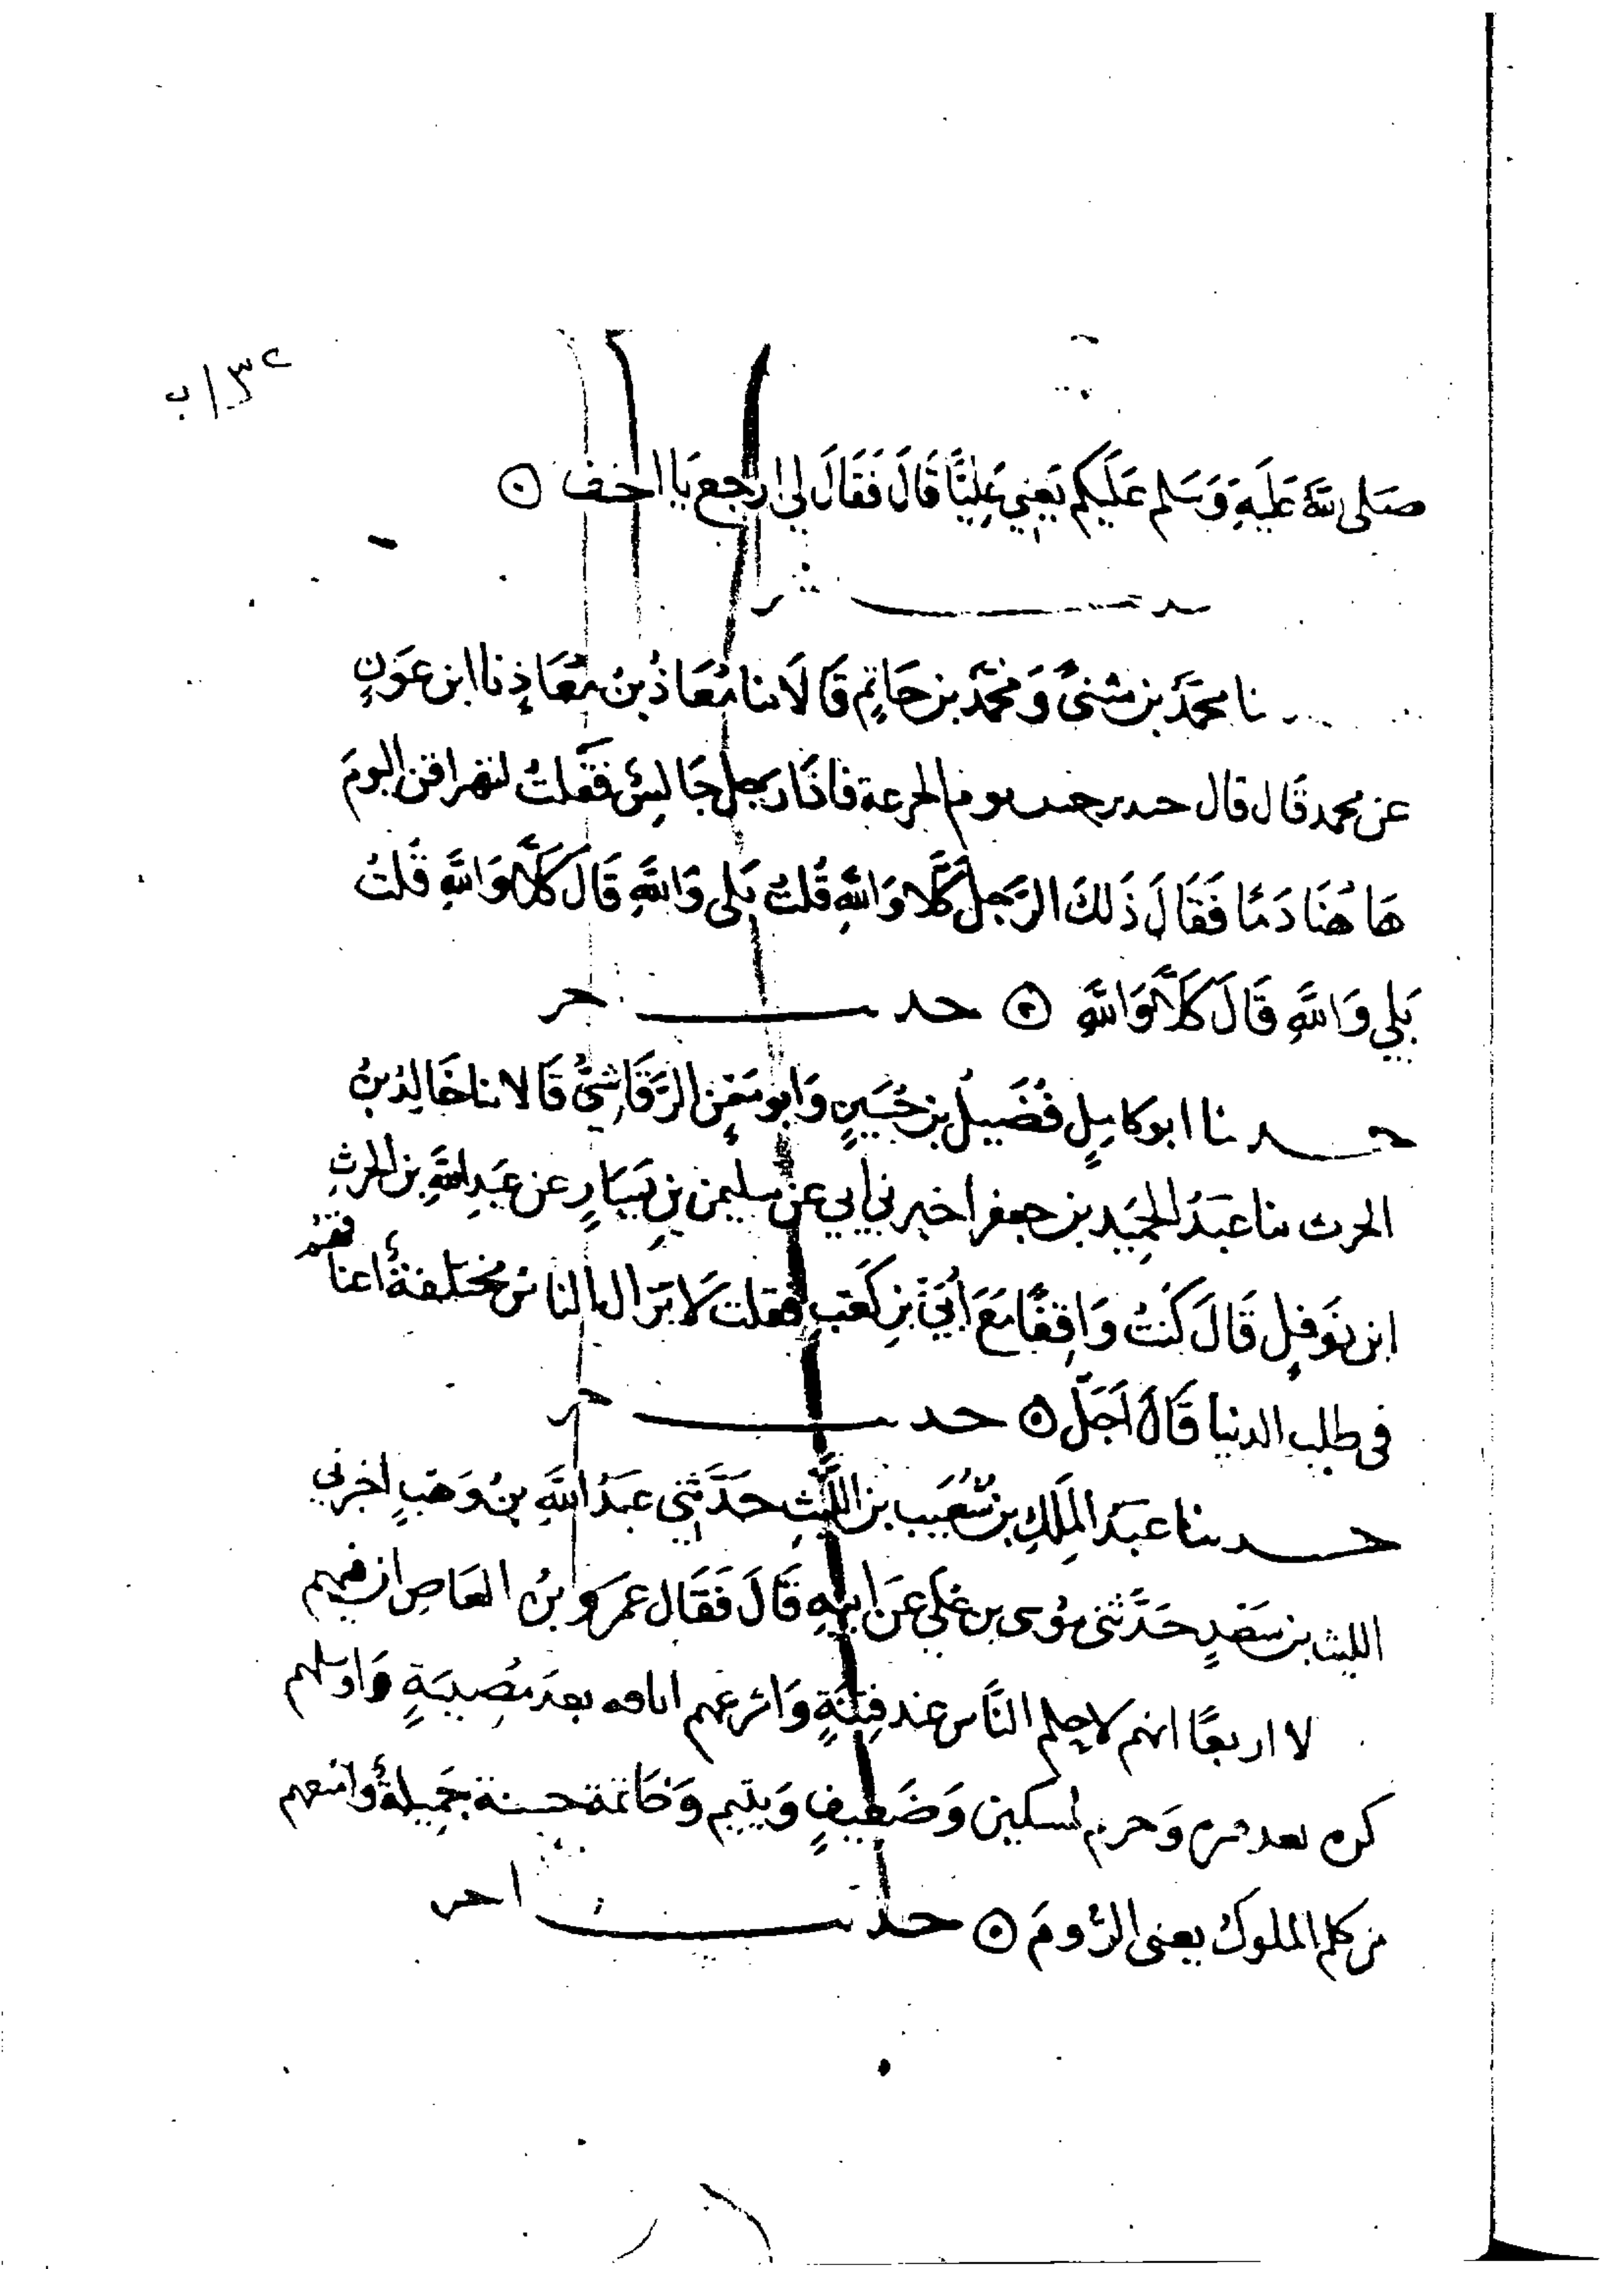 ٣٢/ب
صَلى اللهُ عَلَيهِ وَسَلم عَلَيكم يَعني عَلِيًّا قَالَ فَقَالَ لي ارجع يَا احنف ۞
حديث اخر
نا محمَّدُ بن مثنىٌ وَمحمَّدُ بن حَاتِمٍ قَالَا نا مُعَاذُ بنُ مُعَاذٍ نا ابن عَونٍ
عن محمد قَال قال جندب جئت يوم الجرعة فاذَا رجل جَالِسٌ فقَلتُ لتهراقن اليومَ
هَا هُنَا دَمًا فَقَالَ ذَلكَ الرَّجلُ كَلَّا وَاللهِ قُلتُ بَلى وَاللهِ قَالَ كَلَّا وَاللهِ قُلتُ
بَلي وَاللهِ قَالَ كَلَّا وَاللهِ ۞ حديث اخر
حدثنا ابو كامِلٍ فُضَيلُ بن حُسَينٍ وَابو مَعنٍ الرَّقَاشِيُّ قَالا نا خَالِدُ بنُ
الحرث نا عَبدُ الحمِيد بن جعفر اخبرني ابي عن سليمن بنِ يَسَارٍ عن عَبدِ اللهِ بن الحرثِ
ابن نَوفلٍ قَالَ كُنتُ وَاقِفًا مَعَ اُبَيِّ بنِ كَعبٍ فقلت لَا يزال الناسُ مختَلِفةً اعناقهُم
فى طلب الدنيا قَالَ اَجَلْ ۞ حديث اخر
حدثنا عبدُ المَلِكِ بن شُعَيب بن اللَّيثِ حَدَّثني عَبدُ اللهِ بنُ وَهبٍ اخبرني
الليث بن سَعدٍ حَدَّثنى مُوسى بن عُلَي عَن ابيهِ قَالَ فَقَال عمرو بنُ العَاصِ ان فيهم
لا اربعًا انهم لاحلم النَّاس عند فِتنَةٍ وَاسرعهم افاقه بعدَ مُصِيبَةٍ وَاوسلهم
كره بعد فره وَخرهم لمسكين وَضَعِيفٍ وَيتيم وَخامسة حسنة جَمِيلةٌ وامنعهم
من ظلم الملوك يعنى الرُّومَ ۞ حديث اخر